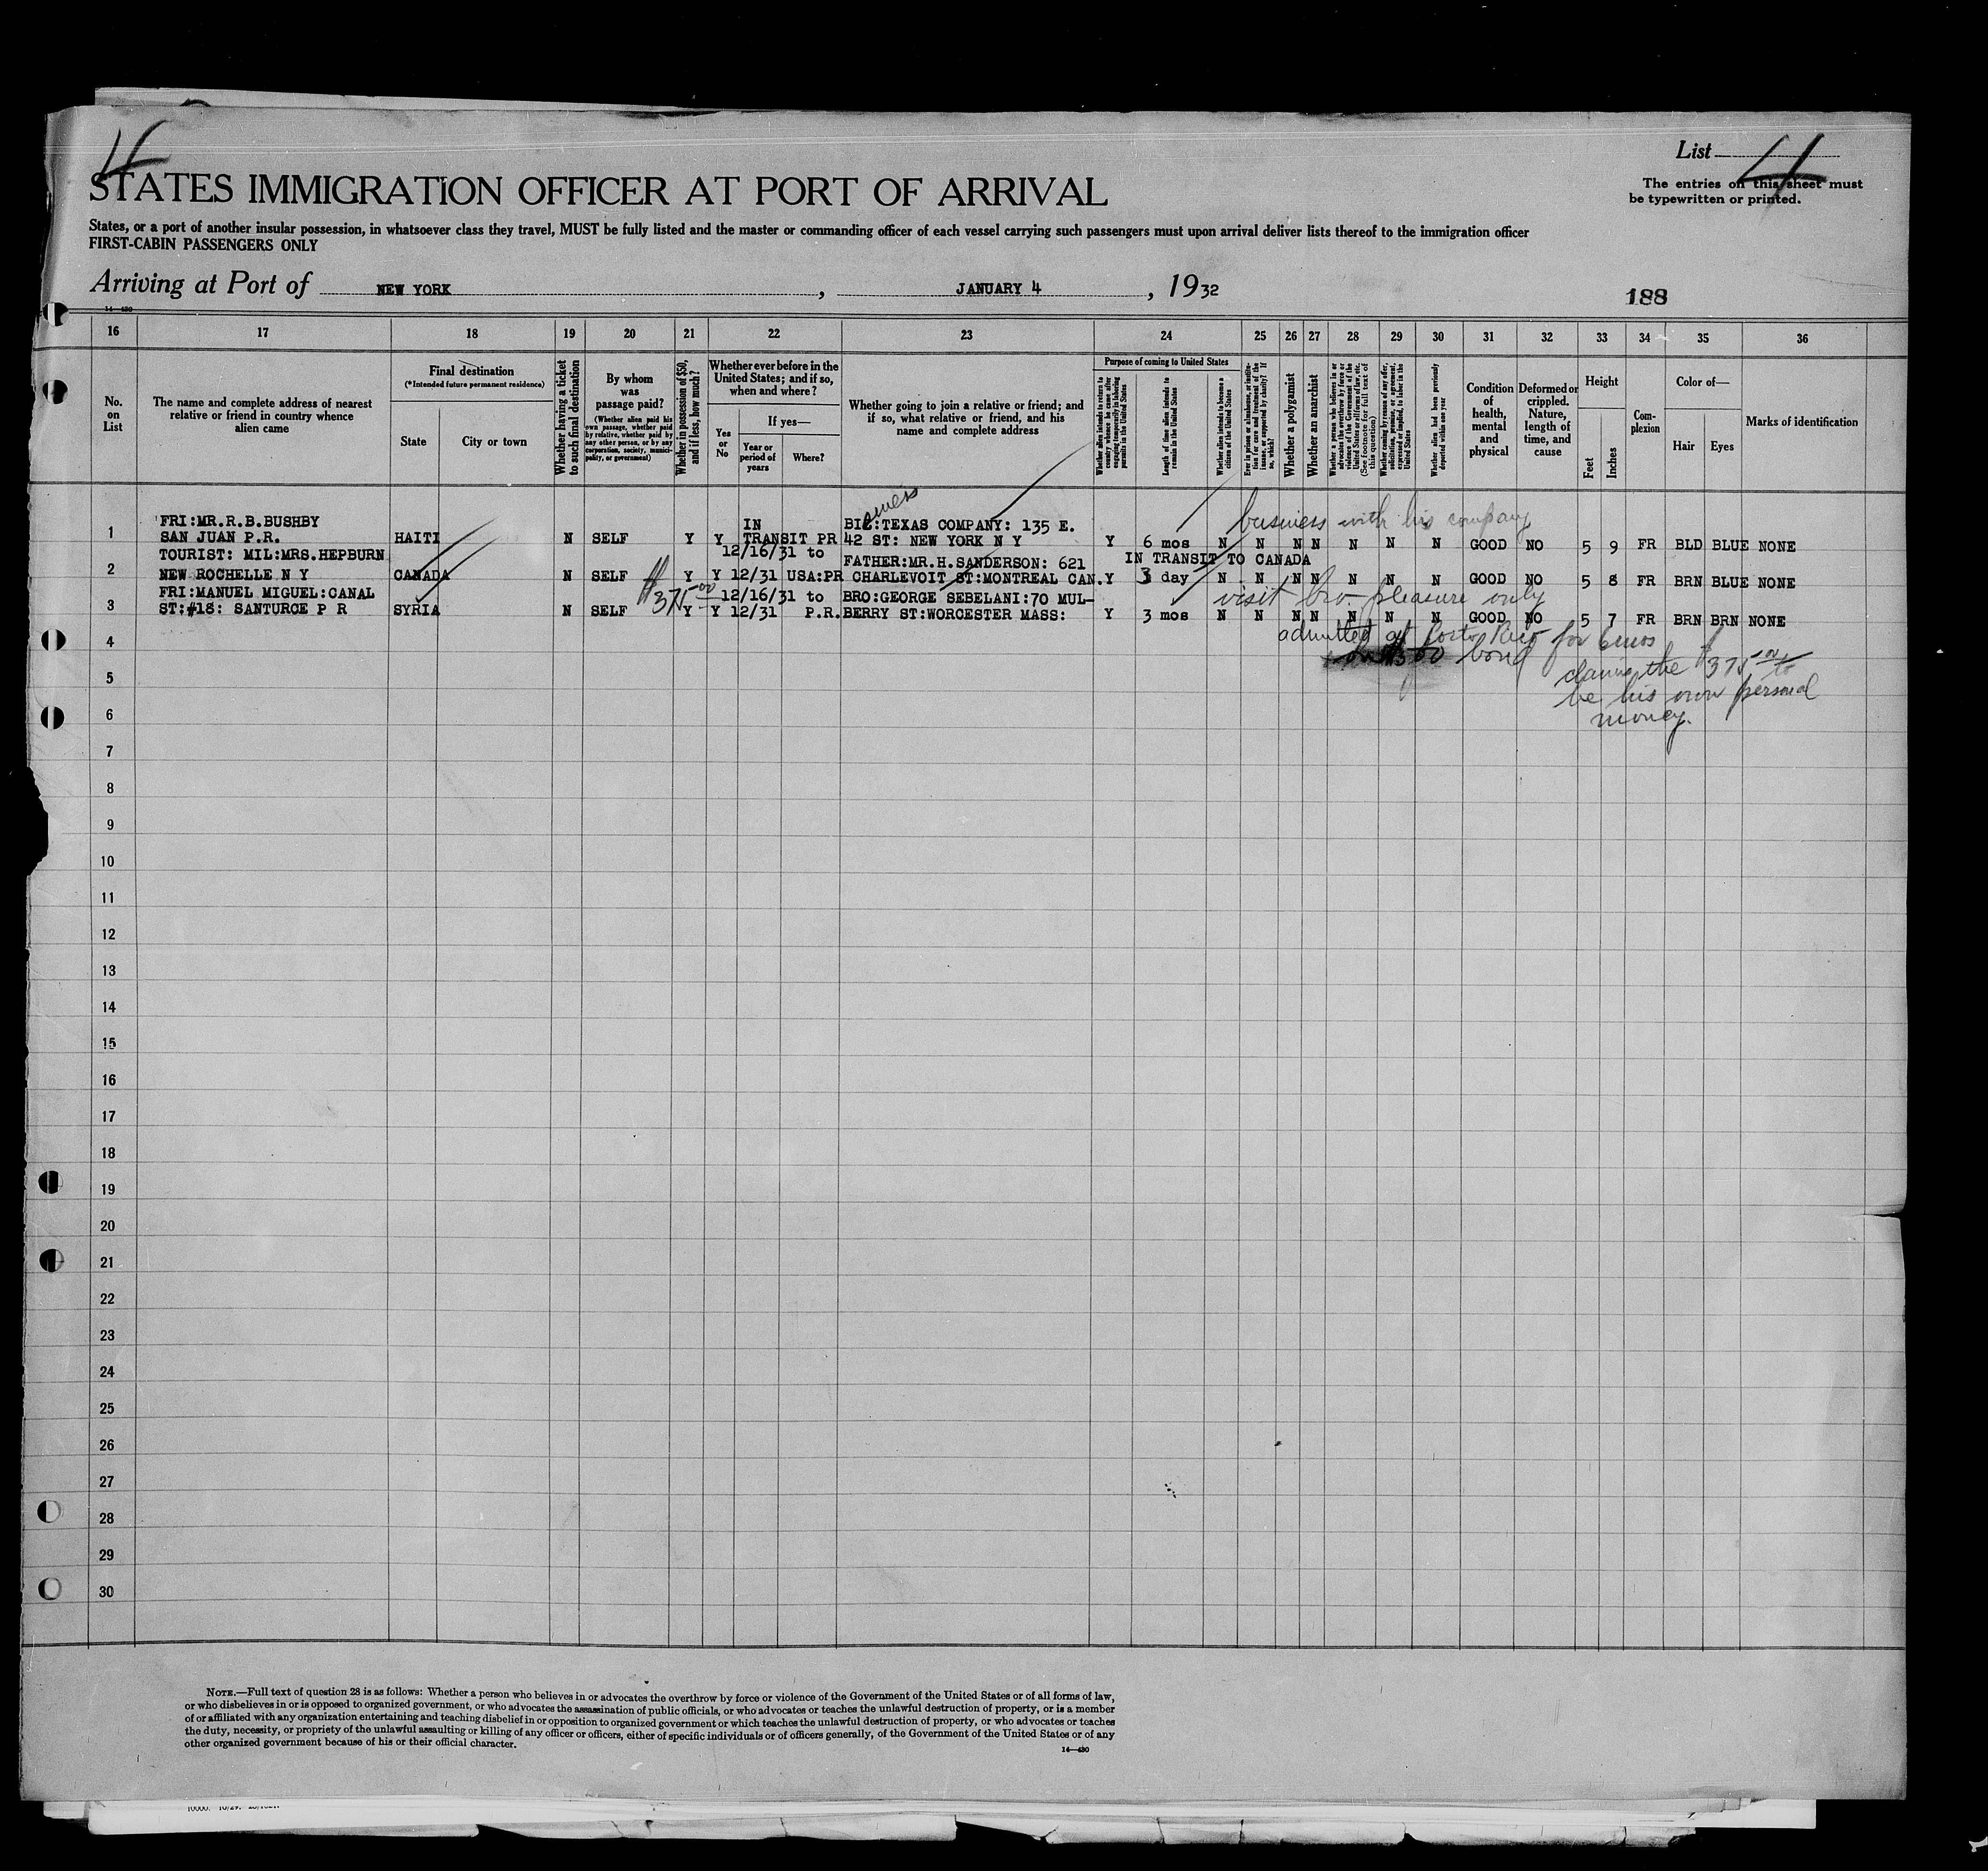 4
List 4
The entries on this sheet must
be typewritten or printed.
STATES IMMIGRATION OFFICER AT PORT OF ARRIVAL
States, or a port of another insular possession, in whatsoever class they travel, MUST be fully listed and the master or commanding officer of each vessel carrying such passengers must upon arrival deliver lists thereof to the immigration officer
FIRST-CABIN PASSENGERS ONLY
Arriving at Port of NEW YORK, JANUARY 4, 1932
188
14-480
16 17 18 19 20 21 22 23 24 25 26 27 28 29 30 31 32 33 34 35 36
No. on List
The name and complete address of nearest relative or friend in country whence alien came
Final destination
(*Intended future permanent residence)
State
City or town
Whether having a ticket to such final destination
By whom was passage paid?
(Whether alien paid his own passage, whether paid by relative, whether paid by any other person, or by any corporation, society, municipality, or government)
Whether in possession of $50, and if less, how much?
Whether ever before in the United States; and if so, when and where?
Yes or No
If yes—
Year or period of years
Where?
Whether going to join a relative or friend; and if so, what relative or friend, and his name and complete address
Purpose of coming to United States
Whether alien intends to return to country whence he came after engaging temporarily in laboring pursuits in the United States
Length of time alien intends to remain in the United States
Whether alien intends to become a citizen of the United States
Ever in prison or almshouse, or institution for care and treatment of the insane, or supported by charity? If so, which?
Whether a polygamist
Whether an anarchist
Whether a person who believes in or advocates the overthrow by force or violence of the Government of the United States or all forms of law, etc. (See footnote for full text of this question)
Whether coming by reason of any offer, solicitation, promise, or agreement, expressed or implied, to labor in the United States
Whether alien had been previously deported within one year
Condition of health, mental and physical
Deformed or crippled. Nature, length of time, and cause
Height
Feet
Inches
Complexion
Color of—
Hair
Eyes
Marks of identification
FRI:MR.R.B.BUSHBY IN BIZ:TEXAS COMPANY: 135 E. business with his company
1 SAN JUAN P.R. HAITI N SELF Y Y TRANSIT PR 42 ST: NEW YORK N Y Y 6 mos N N N N N N N GOOD NO 5 9 FR BLD BLUE NONE
TOURIST: MIL:MRS.HEPBURN 12/16/31 to FATHER:MR.H.SANDERSON: 621 IN TRANSIT TO CANADA
2 NEW ROCHELLE N Y CANADA N SELF Y Y 12/31 USA:PR CHARLEVOIT ST:MONTREAL CAN. Y 3 day N N N N N N N GOOD NO 5 8 FR BRN BLUE NONE
FRI:MANUEL MIGUEL:CANAL $375.00 12/16/31 to BRO:GEORGE SEBELANI:70 MUL- visit bro. pleasure only
3 ST:#18: SANTURCE P R SYRIA N SELF Y Y 12/31 P.R. BERRY ST:WORCESTER MASS: Y 3 mos N N N N N N N GOOD NO 5 7 FR BRN BRN NONE
admitted at Porto Rico for 6 mos
on $500 bond
claims the $375.00 to
be his own personal
money.
4
5
6
7
8
9
10
11
12
13
14
15
16
17
18
19
20
21
22
23
24
25
26
27
28
29
30
NOTE.—Full text of question 28 is as follows: Whether a person who believes in or advocates the overthrow by force or violence of the Government of the United States or of all forms of law,
or who disbelieves in or is opposed to organized government, or who advocates the assassination of public officials, or who advocates or teaches the unlawful destruction of property, or is a member
of or affiliated with any organization entertaining and teaching disbelief in or opposition to organized government or which teaches the unlawful destruction of property, or who advocates or teaches
the duty, necessity, or propriety of the unlawful assaulting or killing of any officer or officers, either of specific individuals or of officers generally, of the Government of the United States or of any
other organized government because of his or their official character.
14—480